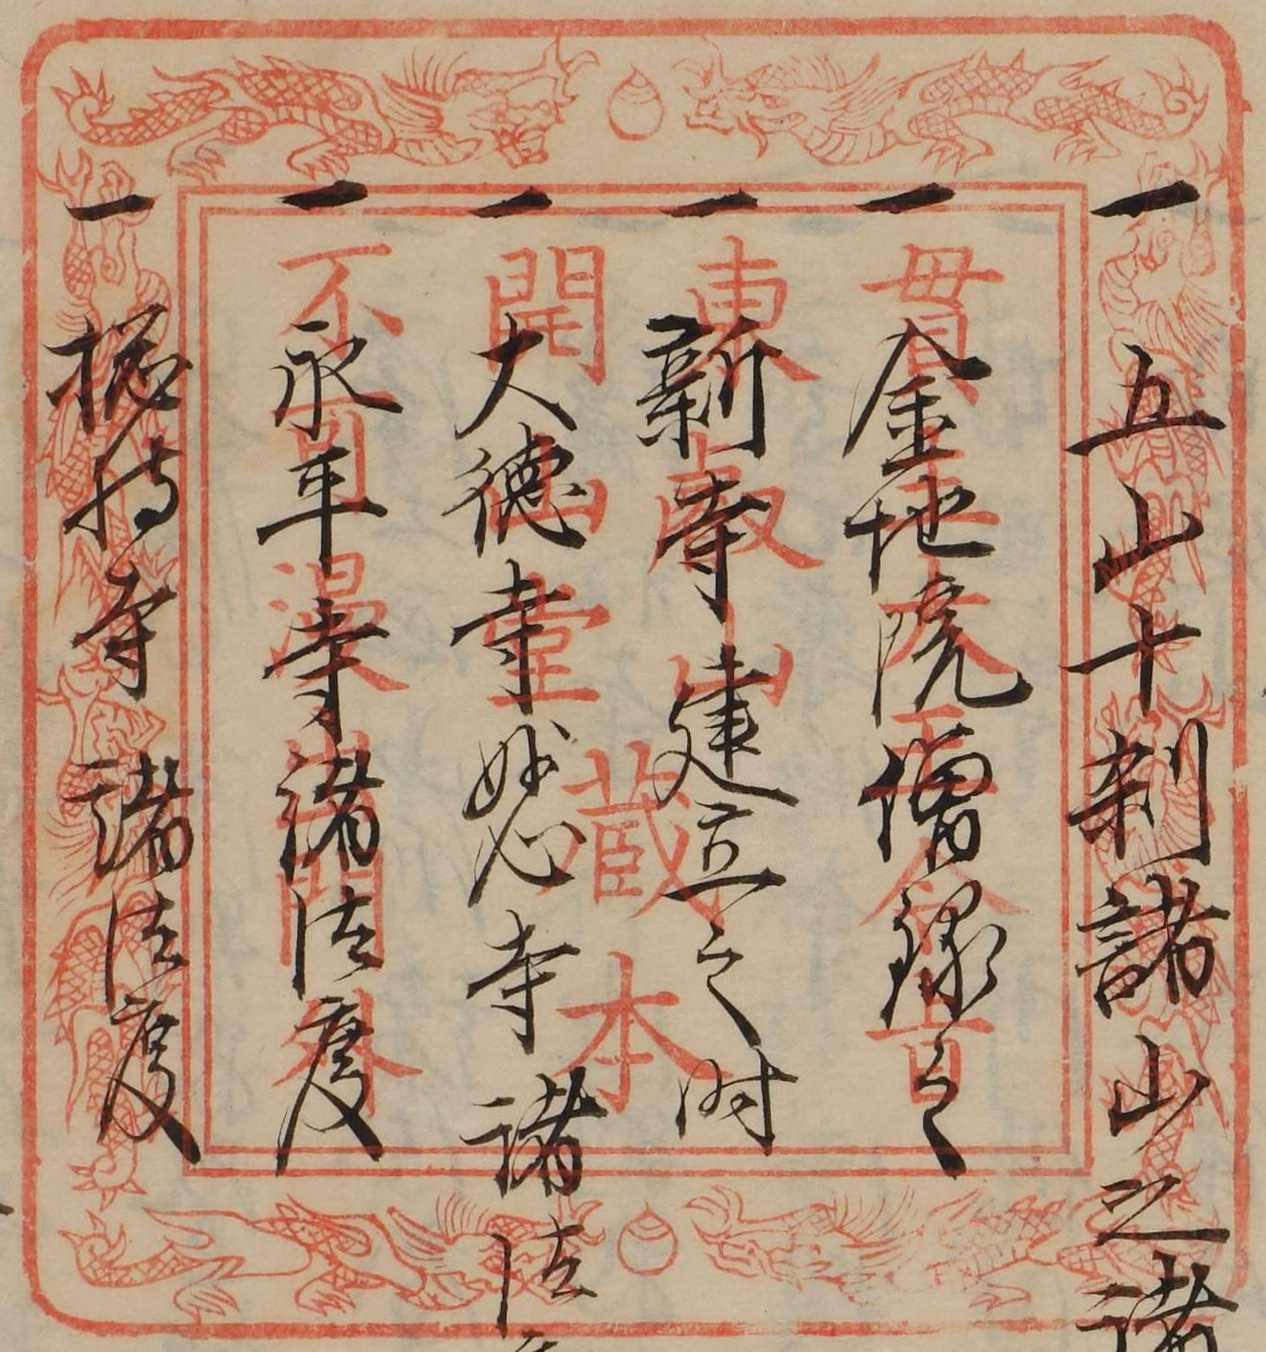 一 五山十刹諸山之諸
一 金地院僧録之
一 新寺建立之時
一 大徳寺妙心寺諸法
一 永平寺諸法度
一 揔持寺諸法度
貫主大王令旨
東叡山
開山堂
蔵本
不可漫出外